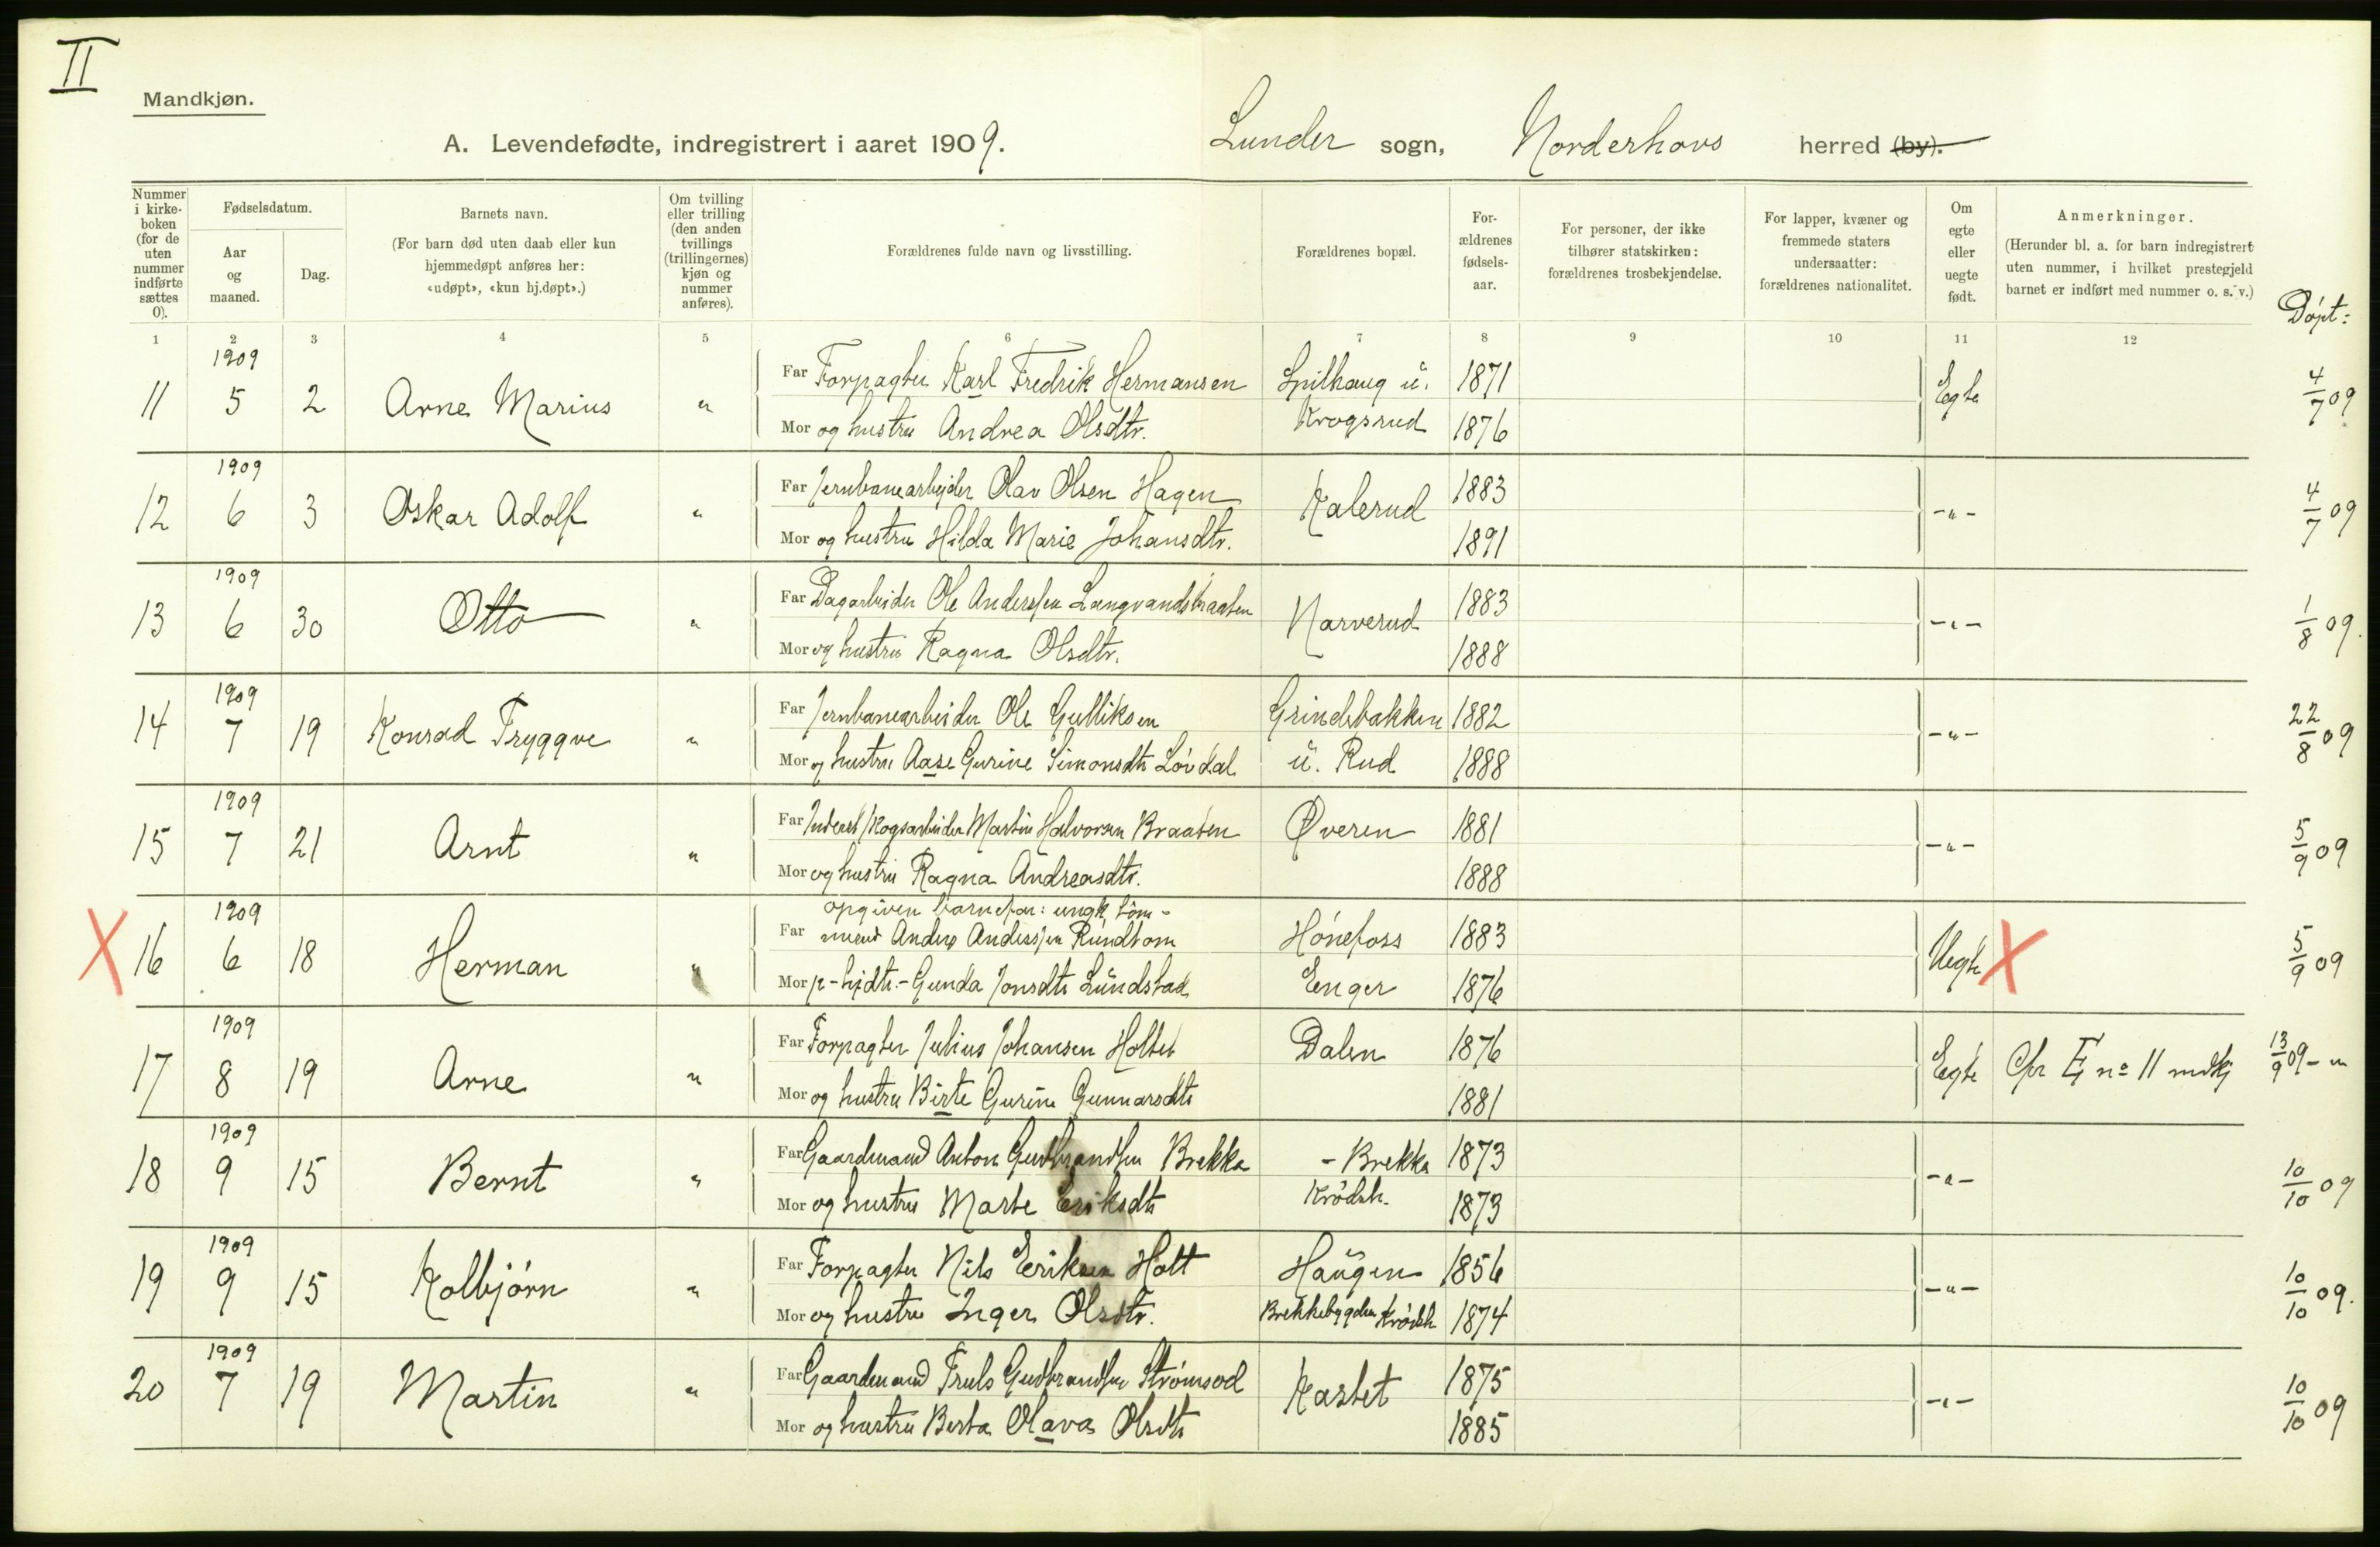 II
Mandkjøn.
A. Levendefødte, indregistrert i aaret 1909. Lunder sogn, Norderhovs herred (by).
Nummer i kirkeboken (for de uten nummer indførte sættes 0).
Fødselsdatum.
Aar og maaned.
Dag.
Barnets navn.
(For barn død uten daab eller kun hjemmedøpt anføres her: «udøpt», «kun hj.døpt».)
Om tvilling eller trilling (den anden tvillings (trillingernes) kjøn og nummer anføres).
Forældrenes fulde navn og livsstilling.
Forældrenes bopæl.
Forældrenes fødselsaar.
For personer, der ikke tilhører statskirken: forældrenes trosbekjendelse.
For lapper, kvæner og fremmede staters undersaatter: forældrenes nationalitet.
Om egte eller uegte født.
Anmerkninger.
(Herunder bl. a. for barn indregistrert uten nummer, i hvilket prestegjeld barnet er indført med nummer o. s. v.)
Døpt:
1 2 3 4 5 6 7 8 9 10 11 12
1909
11 5 2 Arne Marius " Far Forpagter Karl Fredrik Hermansen Spilhaug u. 1871 Egte 4/7 09
Mor og hustru Andrea Olsdtr. Krogsrud 1876
1909
12 6 3 Oskar Adolf " Far Jernbanearbeider Olav Olsen Hagen Kalerud 1883 -"- 4/7 09
Mor og hustru Hilda Marie Johansdtr. 1891
1909
13 6 30 Otto " Far Dagarbeider Ole Anderssen Langvandsbraaten Narverud 1883 -"- 1/8 09.
Mor og hustru Ragna Olsdtr. 1888
1909
14 7 19 Konrad Tryggve " Far Jernbanearbeider Ole Gulliksen Grindebakken 1882 -"- 22/8 09
Mor og hustru Aase Gurine Simonsdtr Løvdal u. Rud 1888
1909
15 7 21 Arnt " Far Inderst Skogsarbeider Martin Halvorsen Braaten Øveren 1881 -"- 5/9 09
Mor og hustru Ragna Andreasdtr. 1888
1909 opgiven barnefar: ungk. tøm-
X 16 6 18 Herman " Far mermd Anders Anderssen Rundtom Hønefoss 1883 Uegte X 5/9 09
Mor Gunda Jonsdtr Lundstad Enger 1876
1909
17 8 19 Arne " Far Forpagter Julius Johansen Holtet Dalen 1876 Egte Cfr E no 11 mdkj 13/9 09 -"
Mor og hustru Birte Gurine Gunnarsdtr 1881
1909
18 9 15 Bernt " Far Gaardmand Anton Gudbrandsen Brekka - Brekka 1873 -"- 10/10 09
Mor og hustru Marte Eriksdtr Krødsh. 1873
1909
19 9 15 Kolbjørn " Far Forpagter Nils Eriksen Holt Haugen 1856 -"- 10/10 09.
Mor og hustru Inger Olsdtr. Brekkebygden Krødsh 1874
1909
20 7 19 Martin " Far Gaardmand Truls Gudbrandsen Strømsod Kastet 1875 -"- 10/10 09
Mor og hustru Berta Olava Olsdtr 1885